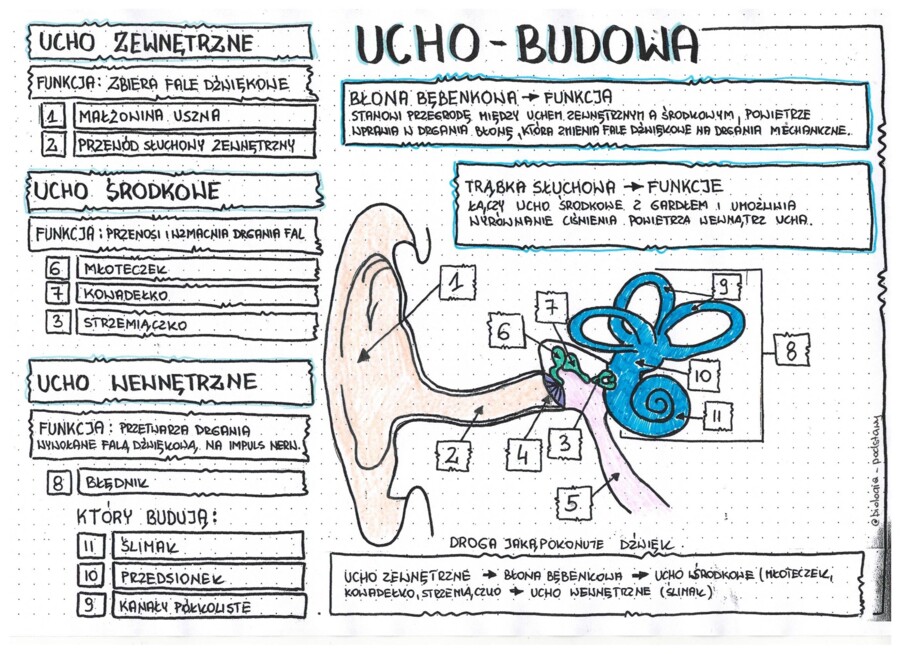 UCHO - BUDOWA
UCHO ZEWNĘTRZNE
FUNKCJA: ZBIERA FALE DŹWIĘKOWE
1 MAŁŻOWINA USZNA
2 PRZEWÓD SŁUCHOWY ZEWNĘTRZNY
UCHO ŚRODKOWE
FUNKCJA: PRZENOSI I WZMACNIA DRGANIA FAL
6 MŁOTECZEK
7 KOWADEŁKO
3 STRZEMIĄCZKO
UCHO WEWNĘTRZNE
FUNKCJA: PRZETWARZA DRGANIA
WYWOŁANE FALĄ DŹWIĘKOWĄ, NA IMPULS NERW.
8 BŁĘDNIK
KTÓRY BUDUJĄ:
11 ŚLIMAK
10 PRZEDSIONEK
9 KANAŁY PÓŁKOLISTE
BŁONA BĘBENKOWA → FUNKCJA
STANOWI PRZEGRODĘ MIĘDZY UCHEM ZEWNĘTRZNYM A ŚRODKOWYM, POWIETRZE
WPRAWIA W DRGANIA BŁONĘ, KTÓRA ZMIENIA FALE DŹWIĘKOWE NA DRGANIA MECHANICZNE.
TRĄBKA SŁUCHOWA → FUNKCJE
ŁĄCZY UCHO ŚRODKOWE Z GARDŁEM I UMOŻLIWIA
WYRÓWNANIE CIŚNIENIA POWIETRZA WEWNĄTRZ UCHA.
1
9
7
6
8
10
11
2
4
3
5
@biologia_podstawy
DROGA JAKĄ POKONUJE DŹWIĘK
UCHO ZEWNĘTRZNE → BŁONA BĘBENKOWA → UCHO ŚRODKOWE (MŁOTECZEK,
KOWADEŁKO, STRZEMIĄCZKO → UCHO WEWNĘTRZNE (ŚLIMAK)